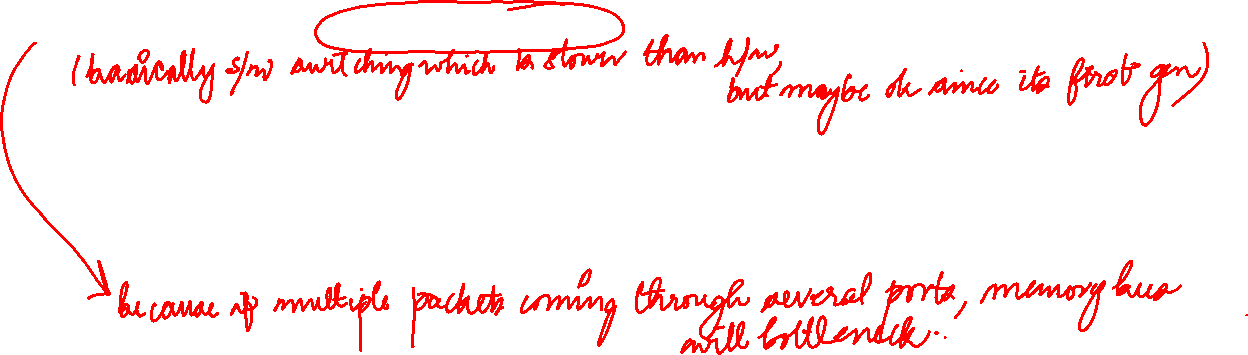 (basically s/w switching which is slower than h/w,
but maybe ok since its first gen)
because if multiple packets coming through several ports, memory bus
will bottleneck..